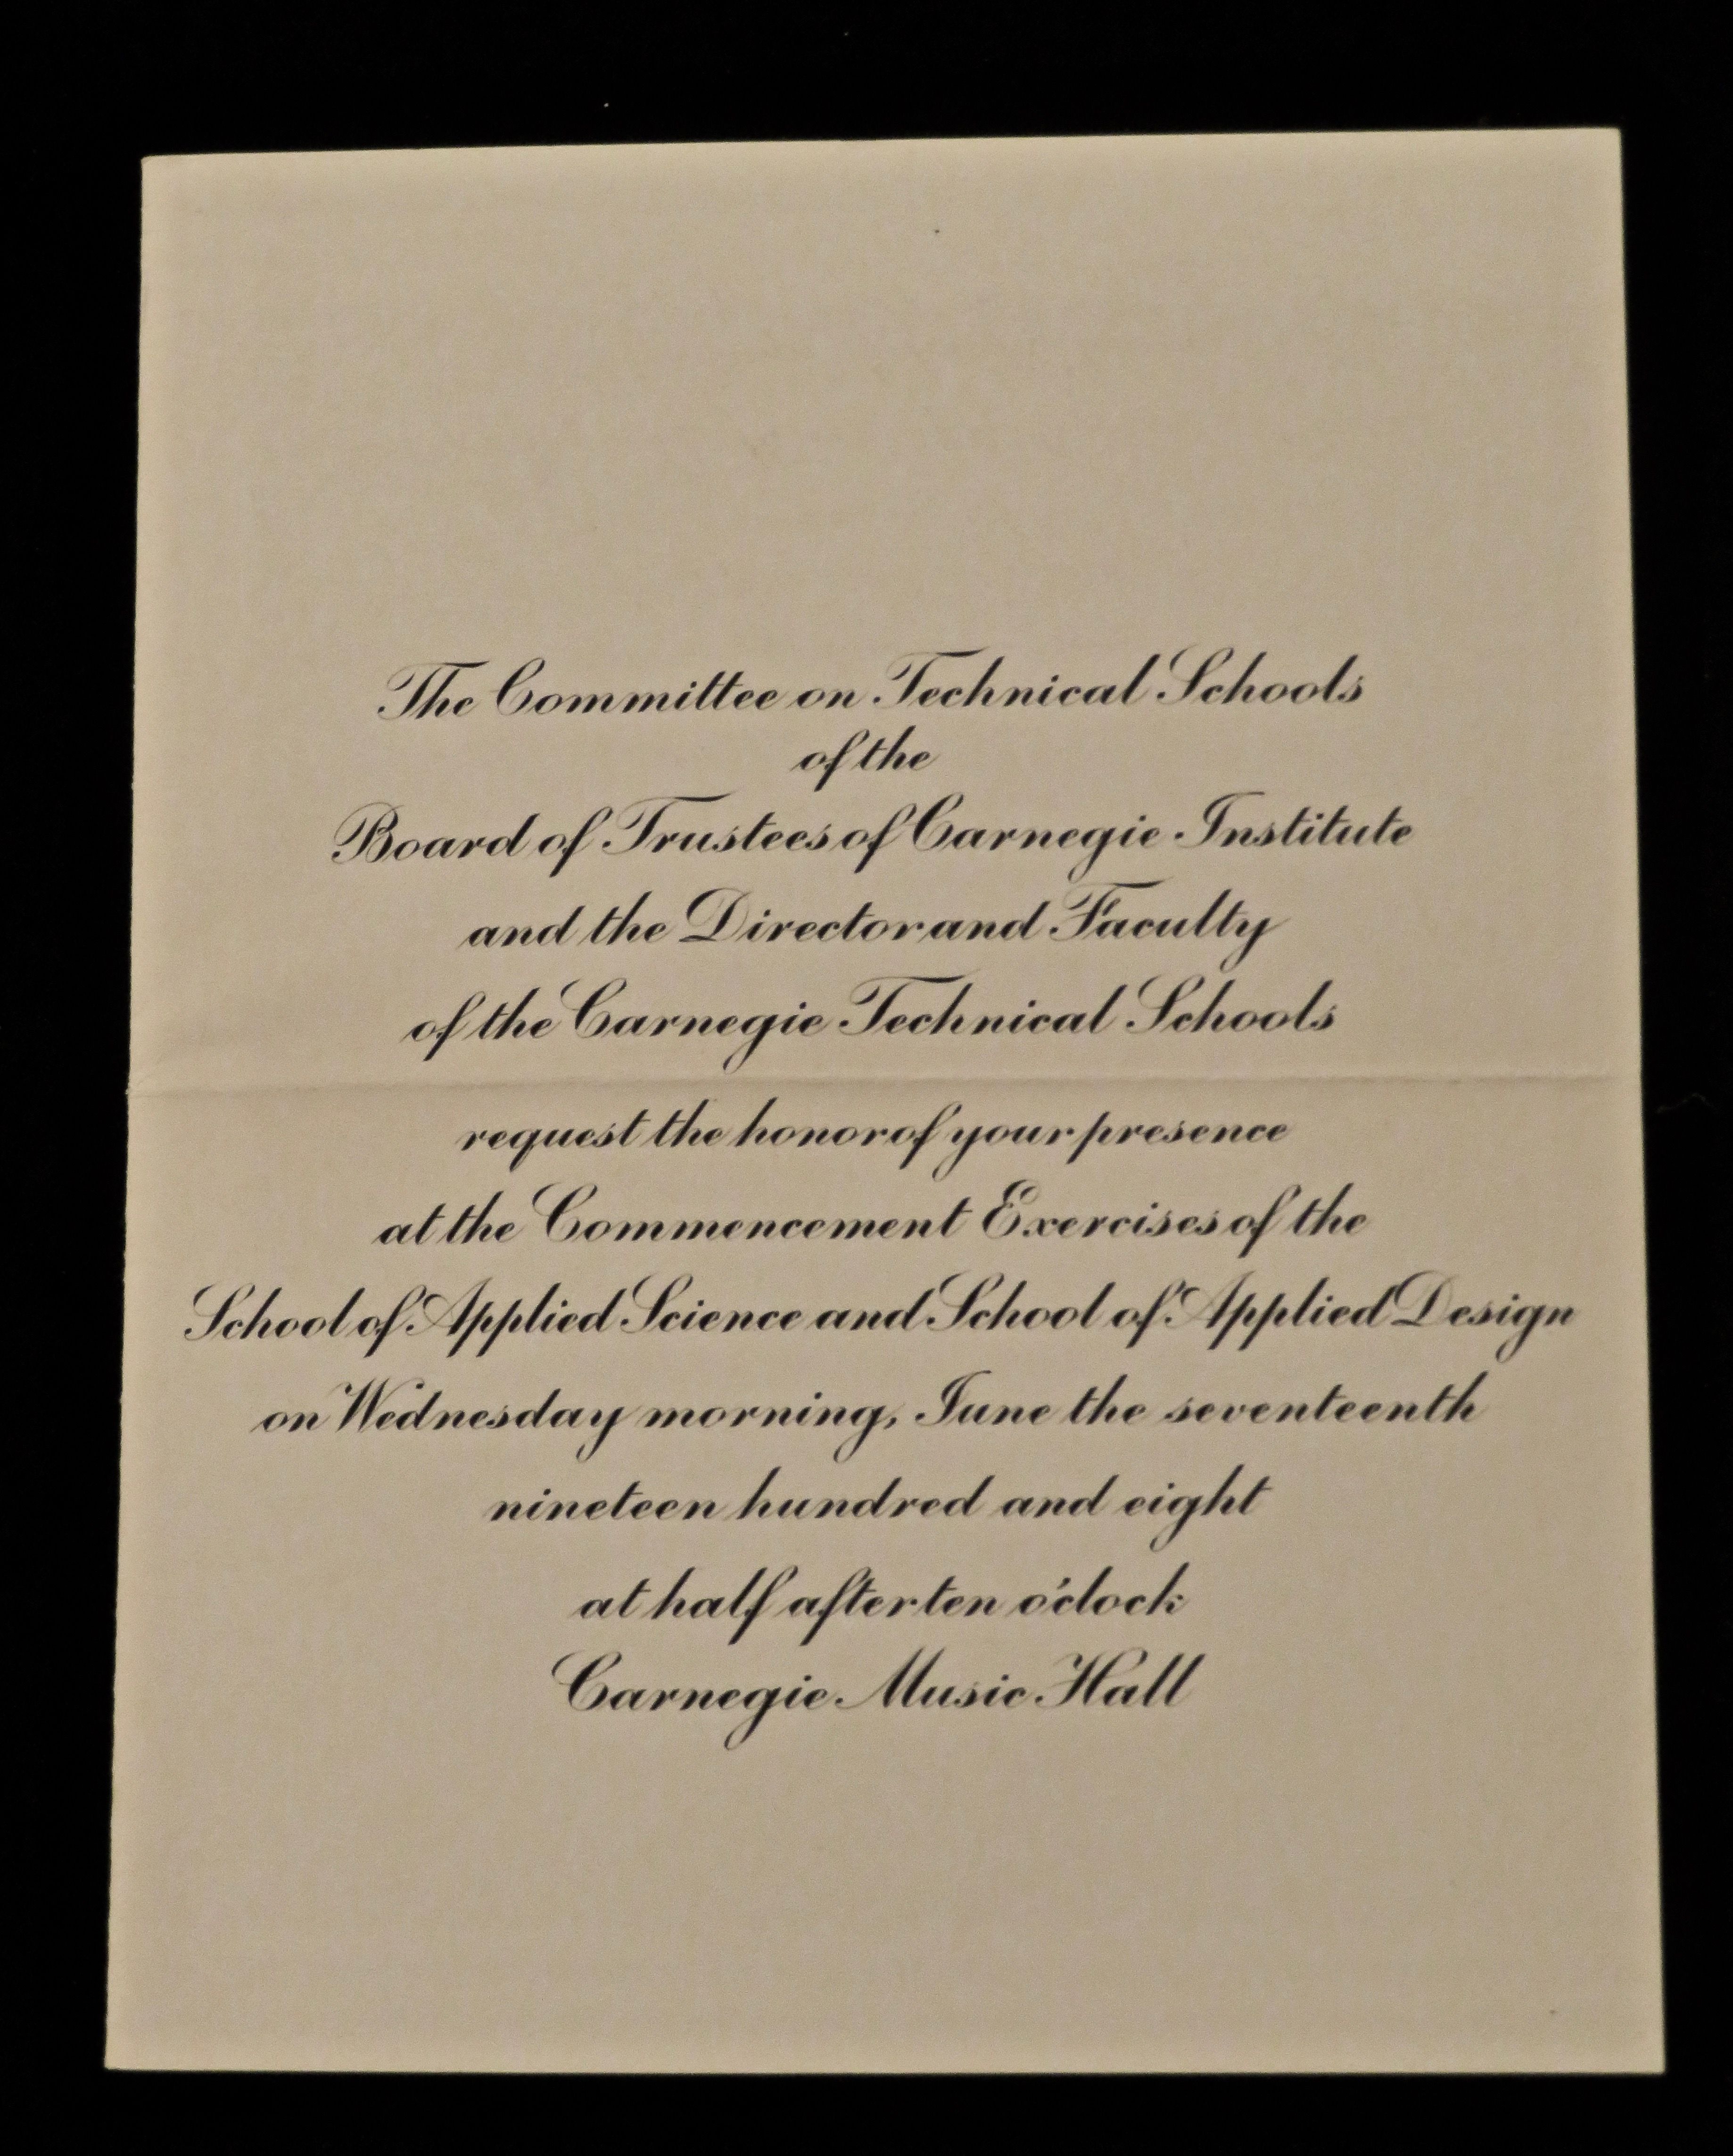 The Committee on Technical Schools
of the
Board of Trustees of Carnegie Institute
and the Director and Faculty
of the Carnegie Technical Schools
request the honor of your presence
at the Commencement Exercises of the
School of Applied Science and School of Applied Design
on Wednesday morning, June the seventeenth
nineteen hundred and eight
at half after ten o'clock
Carnegie Music Hall